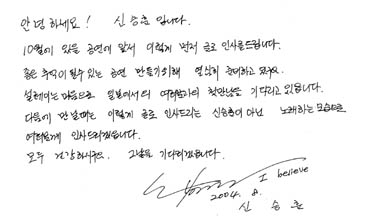 안녕하세요! 신승훈 입니다.
10월에 있을 공연에 앞서 이렇게 먼저 글로 인사를 드립니다.
좋은 추억이 될수 있는 공연 만들기위해 열심히 준비하고 있구요.
설레이는 마음으로 일본에서의 여러분과의 첫만남을 기다리고 있습니다.
다음에 만날때는 이렇게 글로 인사드리는 신승훈이 아닌 노래하는 모습으로
여러분께 인사드리겠습니다.
모두 건강하시구요. 그날을 기다리겠습니다.
I believe
2004. 8.
신 승 훈